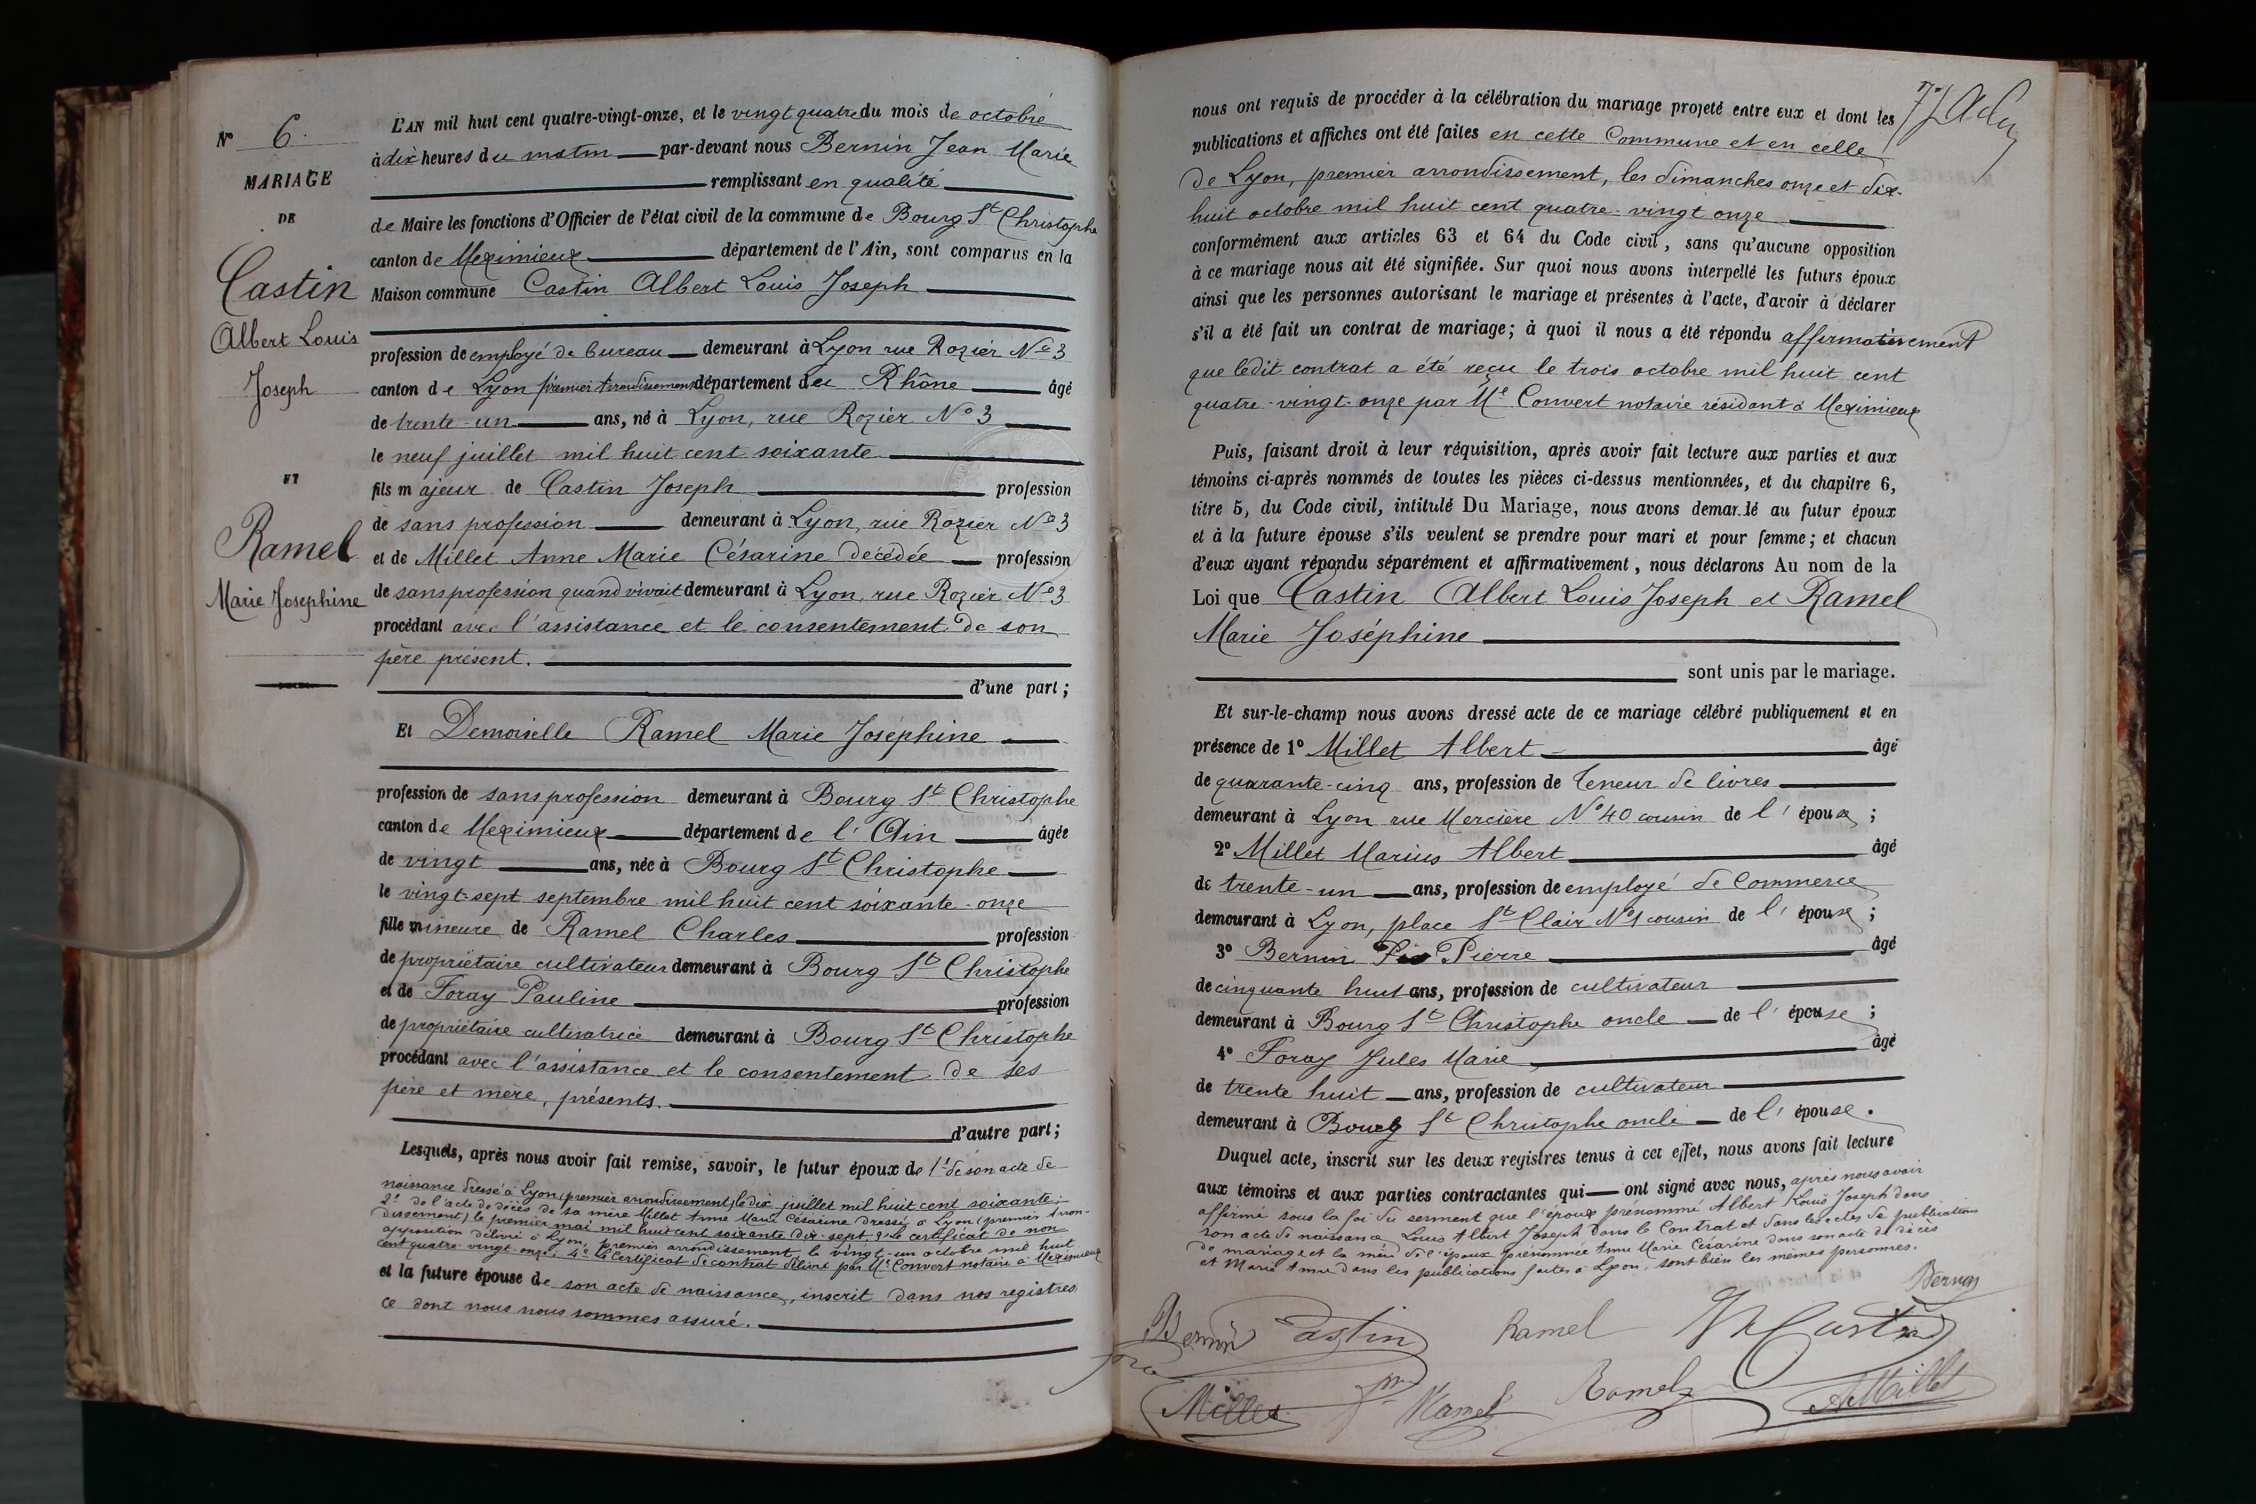 N° 6.
MARIAGE
DE
Castin
Albert Louis
Joseph
ET
Ramel
Marie Josephine
L'AN mil huit cent quatre-vingt-onze, et le vingt quatre du mois de octobre
à dix heures du matin par-devant nous Bernin Jean Marie
remplissant en qualité
de Maire les fonctions d'Officier de l'état civil de la commune de Bourg St Christophe
canton de Meximieux département de l'Ain, sont comparus en la
Maison commune Castin Albert Louis Joseph
profession de employé de bureau demeurant à Lyon rue Rozier No 3
canton de Lyon premier arrondissement département du Rhône âgé
de trente-un ans, né à Lyon, rue Rozier No 3
le neuf juillet mil huit cent soixante
fils majeur de Castin Joseph profession
de sans profession demeurant à Lyon, rue Rozier No 3
et de Millet Anne Marie Césarine décédée profession
de sans profession quand vivait demeurant à Lyon, rue Rozier No 3
procédant avec l'assistance et le consentement de son
père présent.
d'une part;
Et Demoiselle Ramel Marie Joséphine
profession de sans profession demeurant à Bourg St Christophe
canton de Meximieux département de l'Ain âgée
de vingt ans, née à Bourg St Christophe
le vingt-sept septembre mil huit cent soixante-onze
fille mineure de Ramel Charles profession
de propriétaire cultivateur demeurant à Bourg St Christophe
et de Foray Pauline profession
de propriétaire cultivatrice demeurant à Bourg St Christophe
procédant avec l'assistance et le consentement de ses
père et mère, présents.
d'autre part;
Lesquels, après nous avoir fait remise, savoir, le futur époux de 1° de son acte de
naissance dressé à Lyon (premier arrondissement) le dix juillet mil huit cent soixante;
2° de l'acte de décès de sa mère Millet Anne Marie Césarine dressé à Lyon (premier arron-
dissement) le premier mai mil huit cent soixante dix-sept, 3° le certificat de non
opposition délivré à Lyon, premier arrondissement, le vingt-un octobre mil huit
cent quatre-vingt-onze, 4° le certificat de contrat délivré par Me Convert notaire à Meximieux
et la future épouse de son acte de naissance, inscrit dans nos registres
ce dont nous nous sommes assuré.
nous ont requis de procéder à la célébration du mariage projeté entre eux et dont les
publications et affiches ont été faites en cette Commune et en celle
de Lyon, premier arrondissement, les dimanches onze et dix-
huit octobre mil huit cent quatre-vingt onze
conformément aux articles 63 et 64 du Code civil, sans qu'aucune opposition
à ce mariage nous ait été signifiée. Sur quoi nous avons interpellé les futurs époux
ainsi que les personnes autorisant le mariage et présentes à l'acte, d'avoir à déclarer
s'il a été fait un contrat de mariage; à quoi il nous a été répondu affirmativement
que ledit contrat a été reçu le trois octobre mil huit cent
quatre-vingt-onze par Me Convert notaire résidant à Meximieux
Puis, faisant droit à leur réquisition, après avoir fait lecture aux parties et aux
témoins ci-après nommés de toutes les pièces ci-dessus mentionnées, et du chapitre 6,
titre 5, du Code civil, intitulé Du Mariage, nous avons demandé au futur époux
et à la future épouse s'ils veulent se prendre pour mari et pour femme; et chacun
d'eux ayant répondu séparément et affirmativement, nous déclarons Au nom de la
Loi que Castin Albert Louis Joseph et Ramel
Marie Joséphine
sont unis par le mariage.
Et sur-le-champ nous avons dressé acte de ce mariage célébré publiquement et en
présence de 1° Millet Albert âgé
de quarante-cinq ans, profession de teneur de livres
demeurant à Lyon rue Mercière No 40 cousin de l'époux;
2° Millet Marius Albert âgé
de trente-un ans, profession de employé de commerce
demeurant à Lyon, place St Clair No 1 cousin de l'épouse;
3° Bernin Pierre âgé
de cinquante huit ans, profession de cultivateur
demeurant à Bourg St Christophe oncle de l'épouse;
4° Foray Jules Marie âgé
de trente huit ans, profession de cultivateur
demeurant à Bourg St Christophe oncle de l'épouse.
Duquel acte, inscrit sur les deux registres tenus à cet effet, nous avons fait lecture
aux témoins et aux parties contractantes qui ont signé avec nous, après nous avoir
affirmé sous la foi du serment que l'époux prénommé Albert Louis Joseph dans
son acte de naissance, Louis Albert Joseph dans le Contrat et dans les actes de publications
de mariage et la mère de l'époux prénommée Anne Marie Césarine dans son acte de décès
et Marie Anne dans les publications faites à Lyon, sont bien les mêmes personnes.
Bernin
Bernin Castin Ramel Castin
Millet Ramel Ramel A Millet